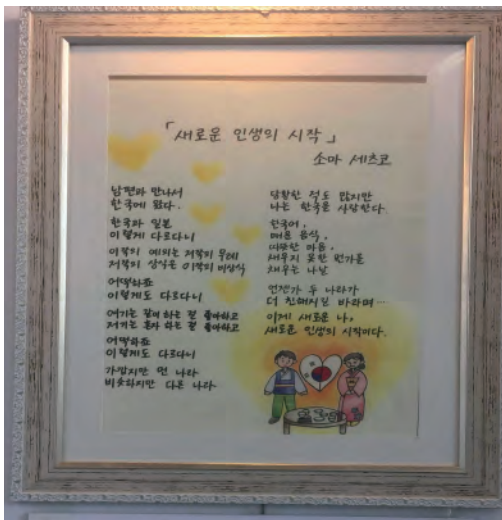 「새로운 인생의 시작」
소마 세츠코
남편과 만나서
한국에 왔다.
한국과 일본
이렇게 다르다니
이쪽의 예의는 저쪽의 무례
저쪽의 상식은 이쪽의 비상식
어떡하죠
이렇게도 다르다니
여기는 같이 하는 걸 좋아하고
저기는 혼자 하는 걸 좋아하고
어떡하죠
이렇게도 다르다니
가깝지만 먼 나라
비슷하지만 다른 나라
당황한 적도 많지만
나는 한국을 사랑한다.
한국어,
매운 음식,
따뜻한 마음,
채우지 못한 뭔가를
채우는 나날
언젠가 두 나라가
더 친해지길 바라며····
이제 새로운 나,
새로운 인생의 시작이다.